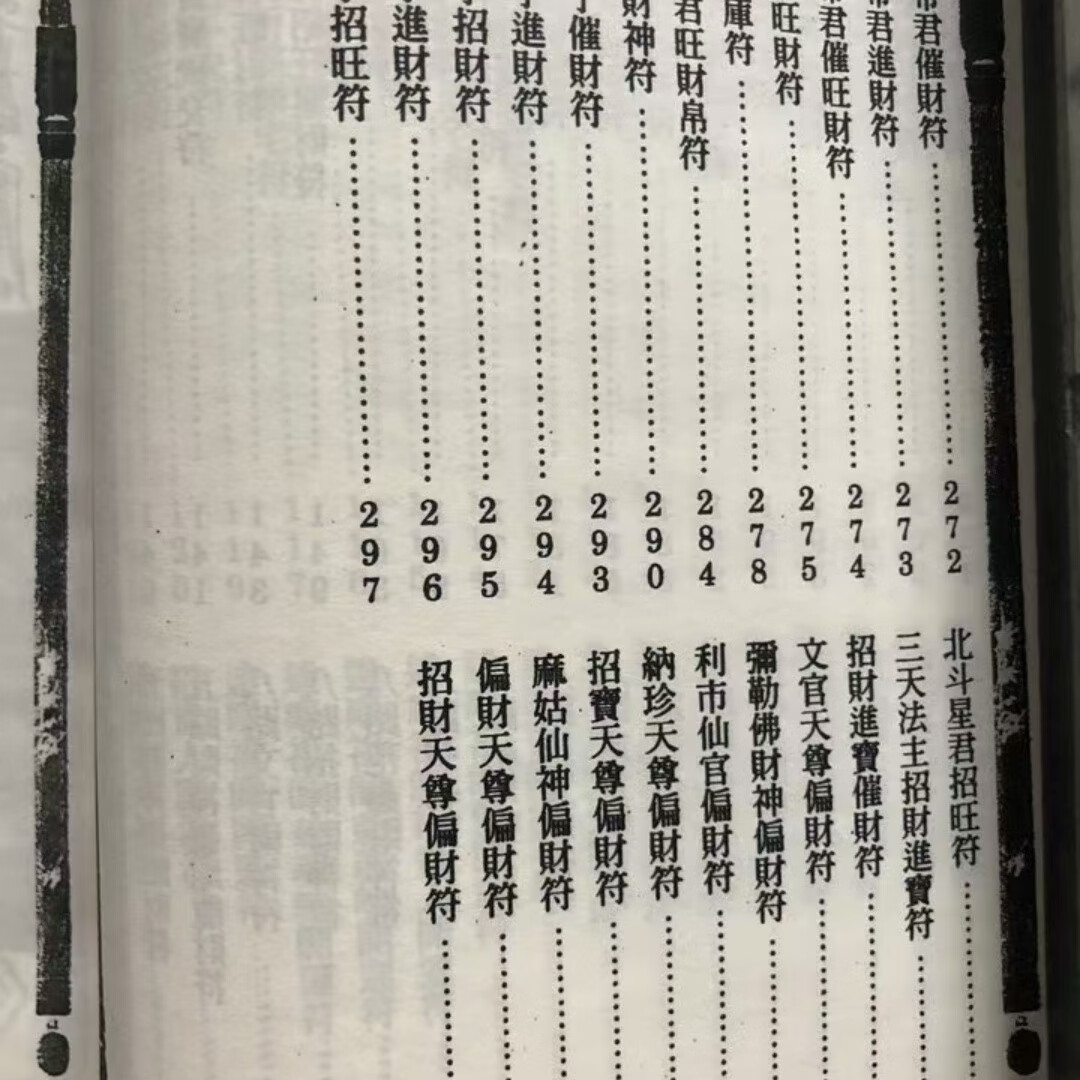 帝君催財符 272
帝君進財符 273
帝君催旺財符 274
旺財符 275
庫符 278
君旺財帛符 284
財神符 290
催財符 293
進財符 294
招財符 295
進財符 296
招旺符 297
北斗星君招旺符
三天法主招財進寶符
招財進寶催財符
文官天尊偏財符
彌勒佛財神偏財符
利市仙官偏財符
納珍天尊偏財符
招寶天尊偏財符
麻姑仙神偏財符
偏財天尊偏財符
招財天尊偏財符